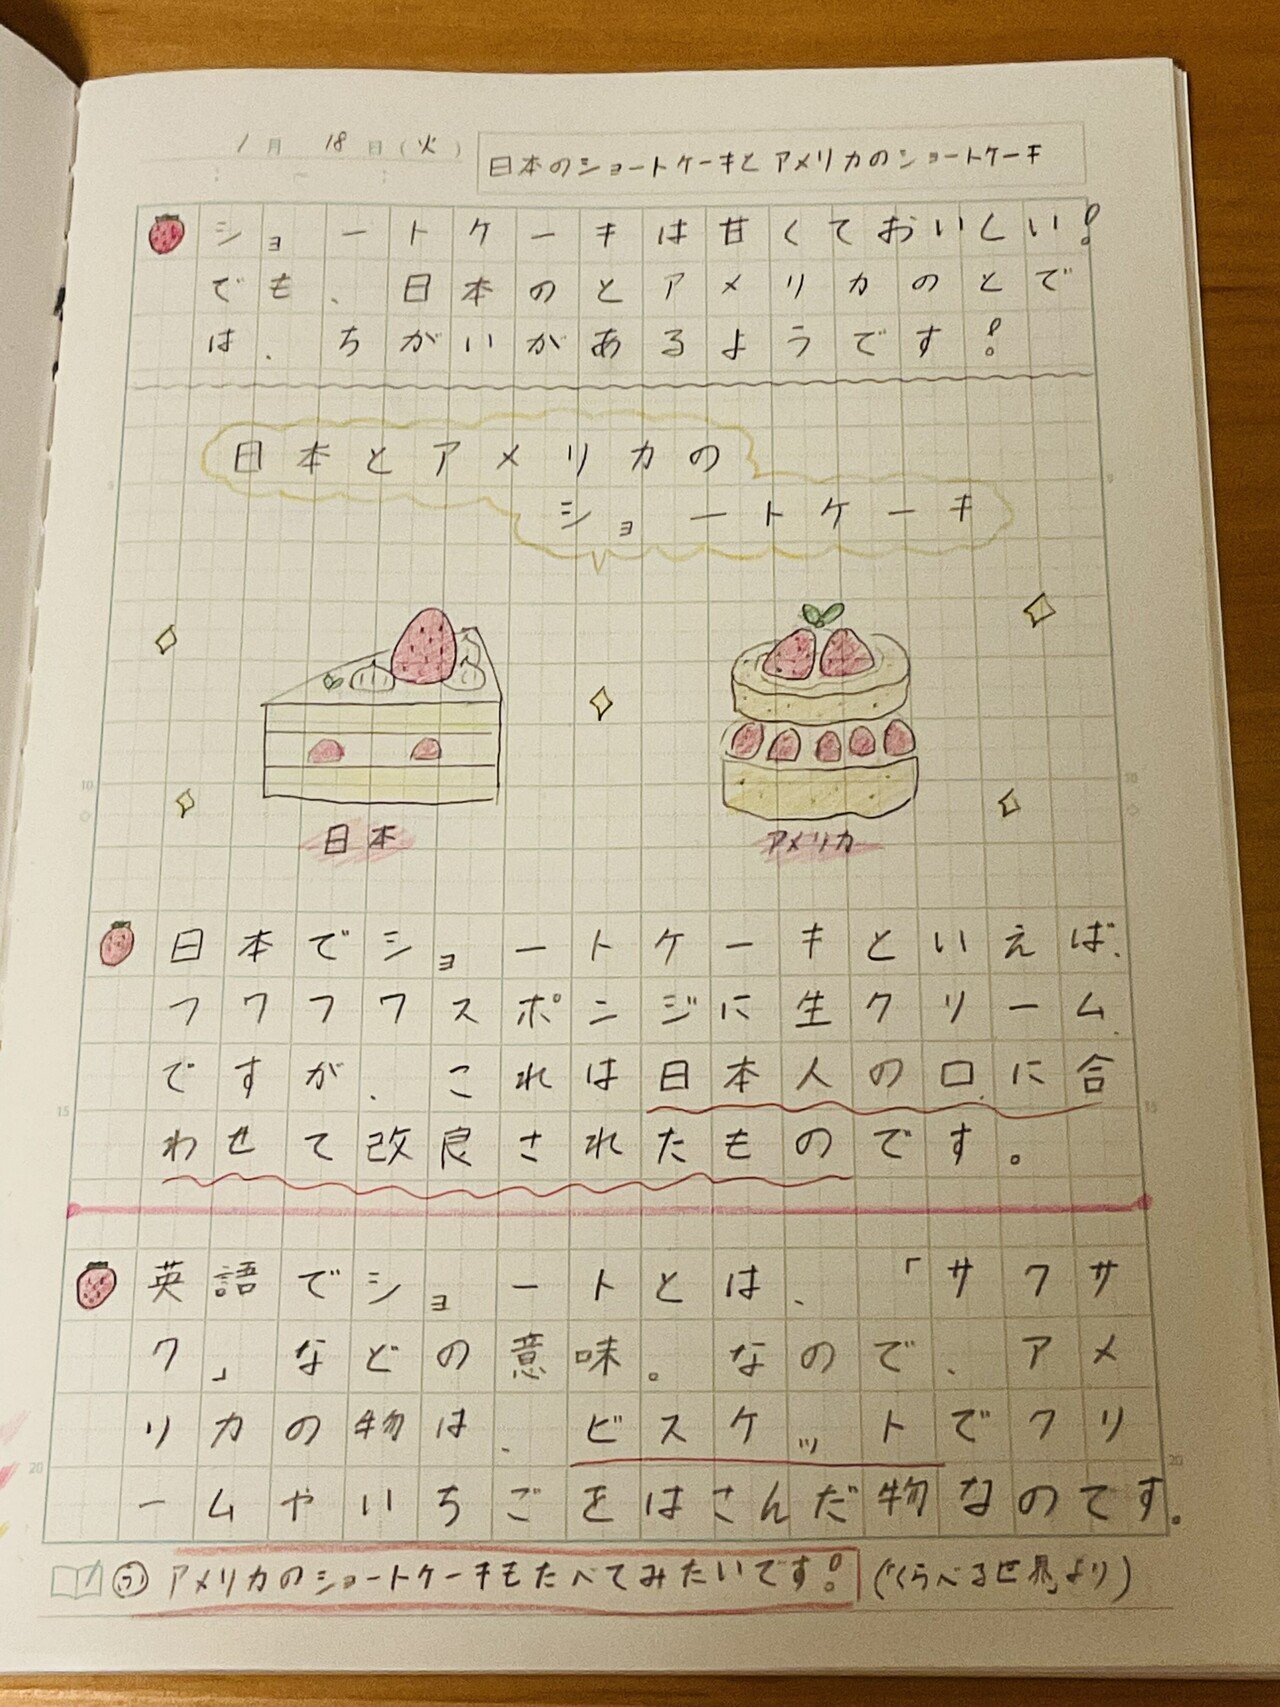 1月 18日(火)
日本のショートケーキとアメリカのショートケーキ
ショートケーキは甘くておいしい!
でも、日本のとアメリカのとで
は、ちがいがあるようです!
日本とアメリカの
ショートケーキ
日本
アメリカ
日本でショートケーキといえば、
フワフワスポンジに生クリーム
ですが、これは日本人の口に合
わせて改良されたものです。
英語でショートとは、「サクサ
ク」などの意味。なので、アメ
リカの物は、ビスケットでクリ
ームやいちごをはさんだ物なのです。
アメリカのショートケーキもたべてみたいです!(「くらべる世界」より)
5
5
10
10
15
15
20
20